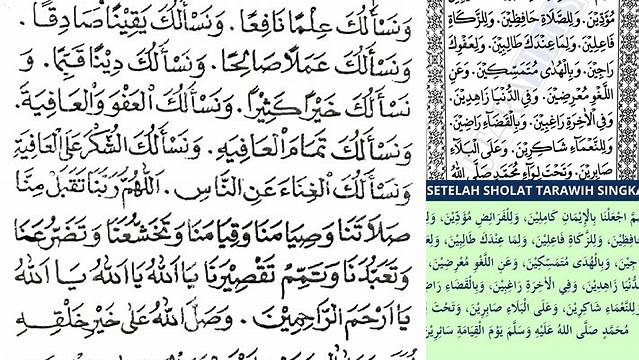 وَنَسْأَلُكَ عِلْمًا نَافِعًا. وَنَسْأَلُكَ يَقِيْنًا صَادِقًا.
وَنَسْأَلُكَ عَمَلًا صَالِحًا. وَنَسْأَلُكَ دِيْنًا قَيِّمًا. وَ
نَسْأَلُكَ خَيْرًا كَثِيْرًا. وَنَسْأَلُكَ الْعَفْوَ وَالْعَافِيَةَ.
وَنَسْأَلُكَ تَمَامَ الْعَافِيَةِ. وَنَسْأَلُكَ الشُّكْرَ عَلَى الْعَافِيَةِ
وَنَسْأَلُكَ الْغِنَاءَ عَنِ النَّاسِ. اَللّٰهُمَّ رَبَّنَا تَقَبَّلْ مِنَّا
صَلَاتَنَا وَصِيَامَنَا وَقِيَامَنَا وَتَخَشُّعَنَا وَتَضَرُّعَنَا
وَتَعَبُّدَنَا وَتَمِّمْ تَقْصِيْرَنَا يَا اَللهُ يَا اَللهُ يَا اَللهُ
يَا اَرْحَمَ الرَّاحِمِيْنَ. وَصَلَّى اللهُ عَلَى خَيْرِ خَلْقِهِ
مُؤَدِّيْنَ. وَلِلصَّلَاةِ حَافِظِيْنَ. وَلِلزَّكَاةِ
فَاعِلِيْنَ. وَلِمَا عِنْدَكَ طَالِبِيْنَ. وَلِعَفْوِكَ
رَاجِيْنَ. وَبِالْهُدَى مُتَمَسِّكِيْنَ. وَعَنِ
اللَّغْوِ مُعْرِضِيْنَ. وَفِي الدُّنْيَا زَاهِدِيْنَ.
وَفِي الْاٰخِرَةِ رَاغِبِيْنَ. وَبِالْقَضَاءِ رَاضِيْنَ.
وَلِلنَّعْمَاءِ شَاكِرِيْنَ. وَعَلَى الْبَلَاءِ
صَابِرِيْنَ. وَتَحْتَ لِوَاءِ مُحَمَّدٍ صَلَّى اللهُ
SETELAH SHOLAT TARAWIH SINGKA
اجْعَلْنَا بِالْإِيْمَانِ كَامِلِيْنَ، وَلِلْفَرَائِضِ مُؤَدِّيْنَ،
وَلِلزَّكَاةِ فَاعِلِيْنَ، وَلِمَا عِنْدَكَ طَالِبِيْنَ،
وَبِالْهُدَى مُتَمَسِّكِيْنَ، وَعَنِ اللَّغْوِ مُعْرِضِيْنَ،
زَاهِدِيْنَ، وَفِي الْآخِرَةِ رَاغِبِيْنَ، وَبِالْقَضَاءِ
لِلنَّعْمَاءِ شَاكِرِيْنَ، وَعَلَى الْبَلَاءِ صَابِرِيْنَ، وَتَحْتَ
مُحَمَّدٍ صَلَّى اللهُ عَلَيْهِ وَسَلَّمَ يَوْمَ الْقِيَامَةِ سَائِرِيْنَ